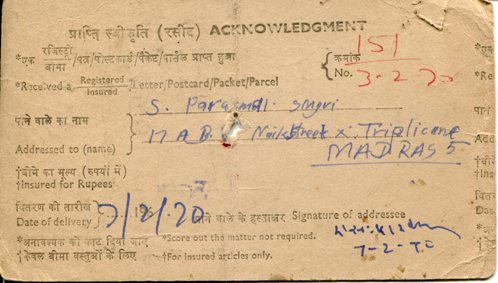 प्राप्ति स्वीकृति (रसीद) ACKNOWLEDGMENT
*एक रजिस्ट्री/बीमा/पत्र/पोस्टकार्ड/पैकेट/पार्सल प्राप्त हुआ
क्रमांक 151
*Received a Registered/Insured/Letter/Postcard/Packet/Parcel
No. 3-2-70
S.
पाने वाले का नाम
17 A.B. Street Triplicane
Addressed to (name)
MADRAS 5
†बीमे का मूल्य (रुपयों में)
†Insured for Rupees
वितरण की तारीख
Date of delivery 7/2/70 पाने वाले के हस्ताक्षर Signature of addressee
*अनावश्यक को काट दिया जाए *Score out the matter not required.
7-2-70
†केवल बीमा वस्तुओं के लिए †For insured articles only.